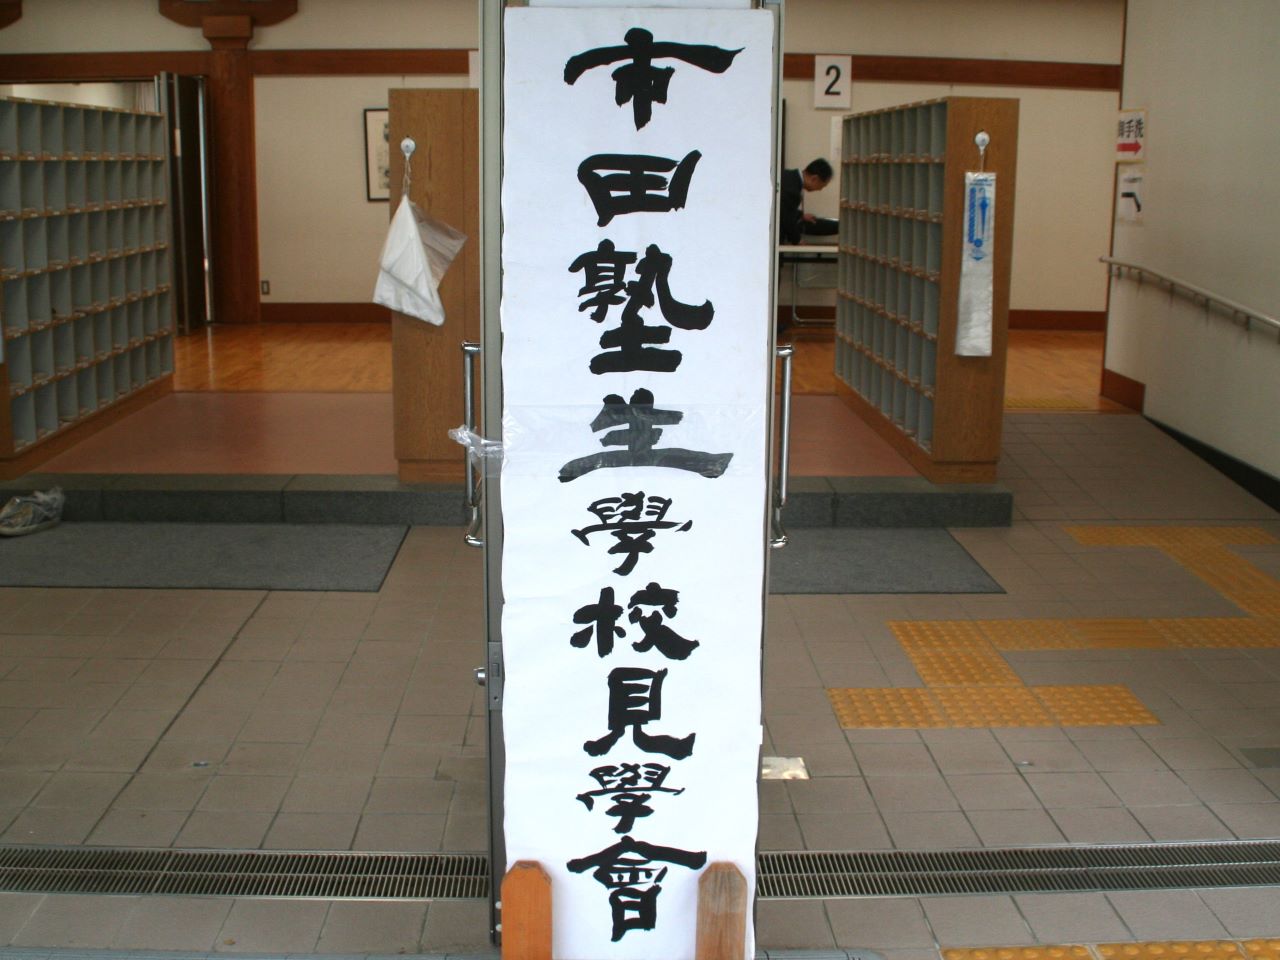 市田塾生學校見學會
2
御手洗